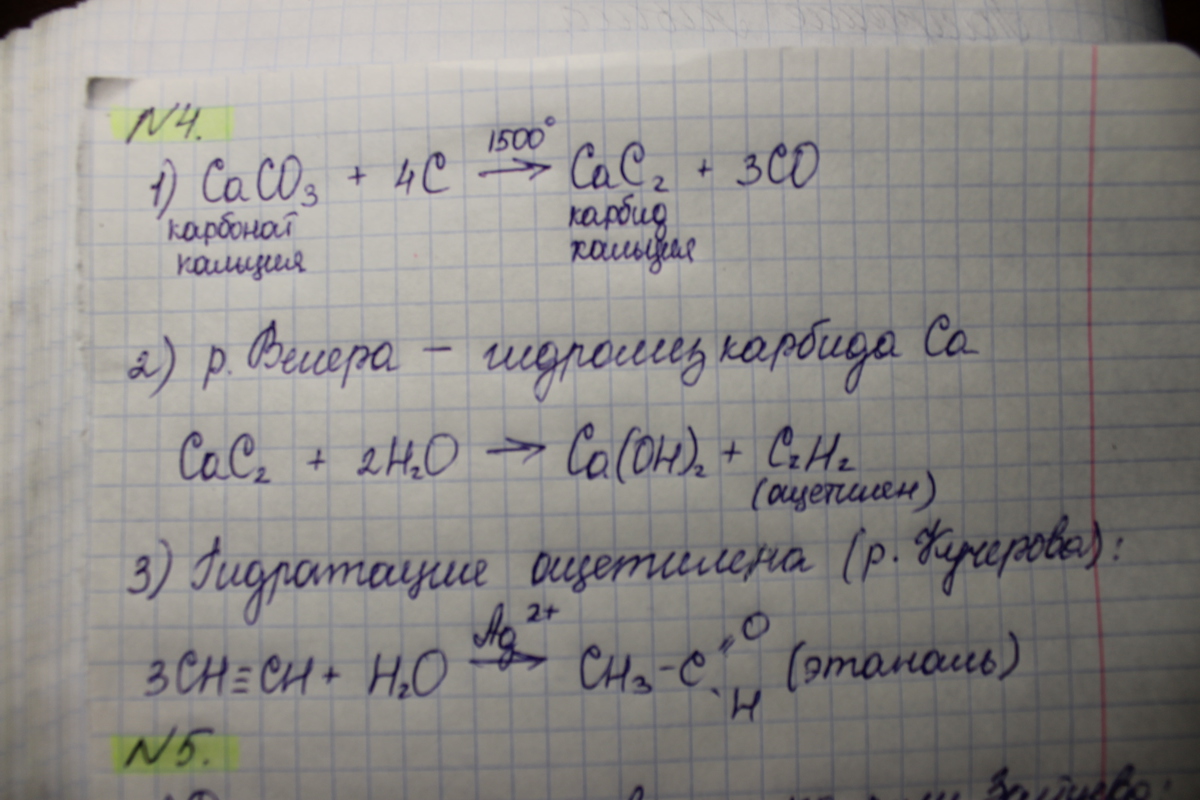 N4.
1) CaCO₃ + 4C 1500° → CaC₂ + 3CO
карбонат кальция карбид кальция
2) р. Велера – гидролиз карбида Ca
CaC₂ + 2H₂O → Ca(OH)₂ + C₂H₂
(ацетилен)
3) Гидратация ацетилена (р. Кучерова):
3CH≡CH + H₂O Ag²⁺ → CH₃-C=O H (этаналь)
N5.